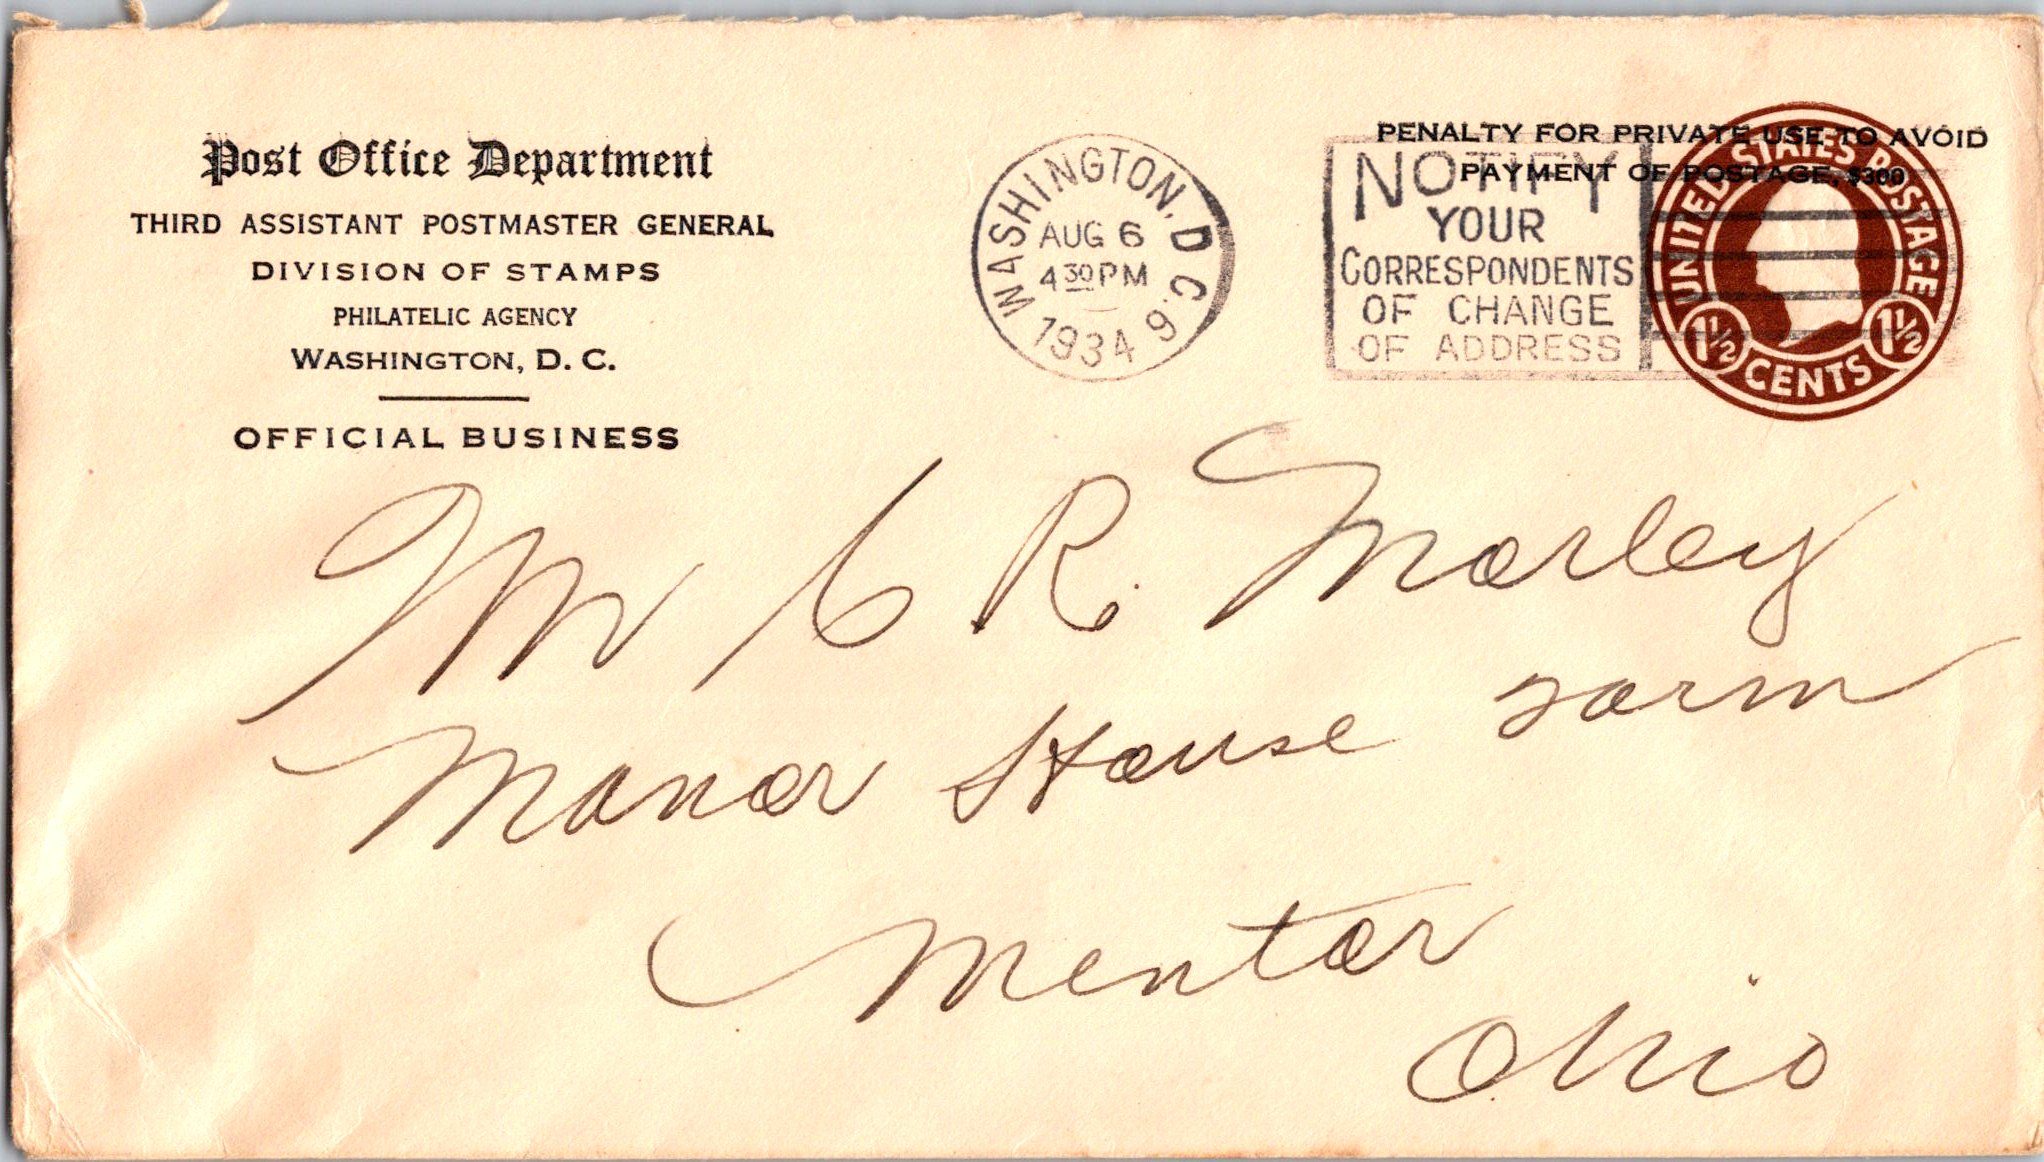 Post Office Department
THIRD ASSISTANT POSTMASTER GENERAL
DIVISION OF STAMPS
PHILATELIC AGENCY
WASHINGTON, D. C.
OFFICIAL BUSINESS
WASHINGTON, D.C. 9
AUG 6
4 30 PM
1934
NOTIFY
YOUR
CORRESPONDENTS
OF CHANGE
OF ADDRESS
PENALTY FOR PRIVATE USE TO AVOID
PAYMENT OF POSTAGE, $300
UNITED STATES POSTAGE
1½ 1½
CENTS
Mr C R. Morley
Manor House Farm
Mentor
Ohio